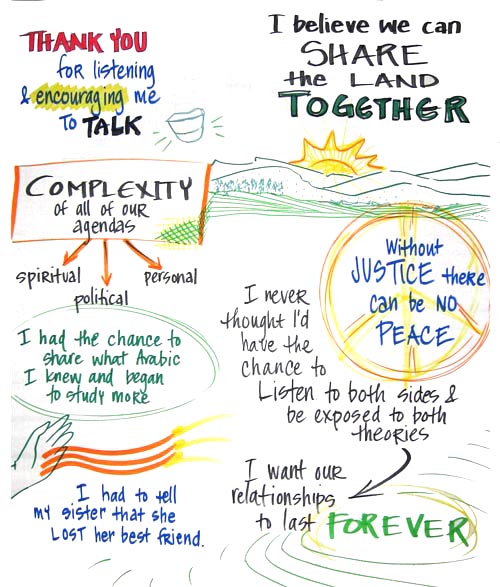 THANK YOU
for listening
& encouraging me
TO TALK
I believe we can
SHARE
the LAND
TOGETHER
COMPLEXITY
of all of our
agendas
spiritual
political
personal
Without
JUSTICE there
can be NO
PEACE
I had the chance to
share what Arabic
I knew and began
to study more
I never
thought I'd
have the
chance to
Listen to both sides &
be exposed to both
theories
I had to tell
my sister that she
LOST her best friend.
I want our
relationships
to last FOREVER